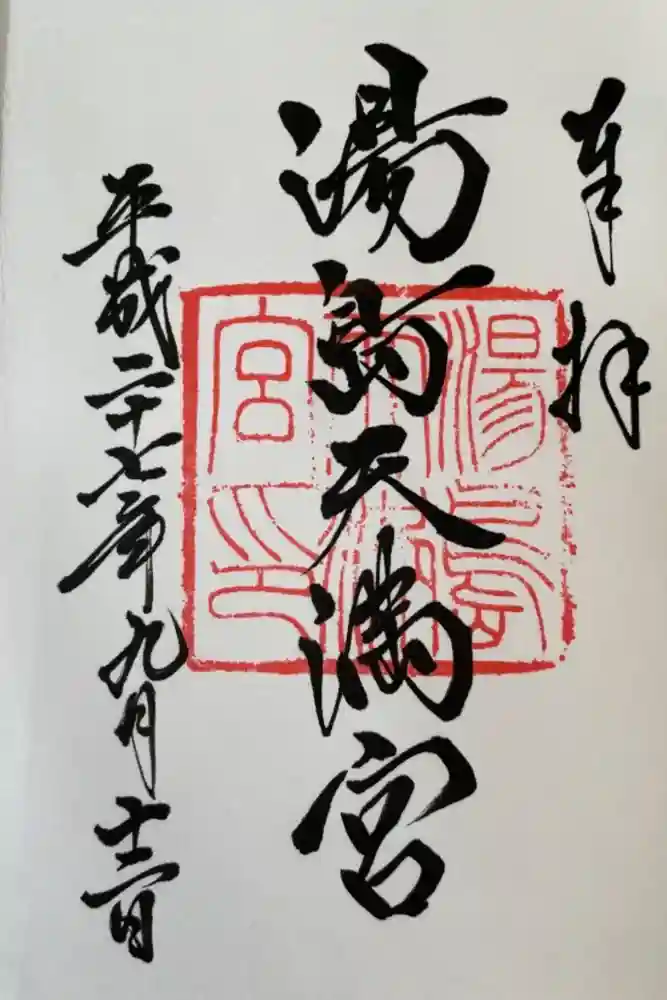 奉拝
湯島天満宮
湯島天満宮印
平成二十七年九月十二日